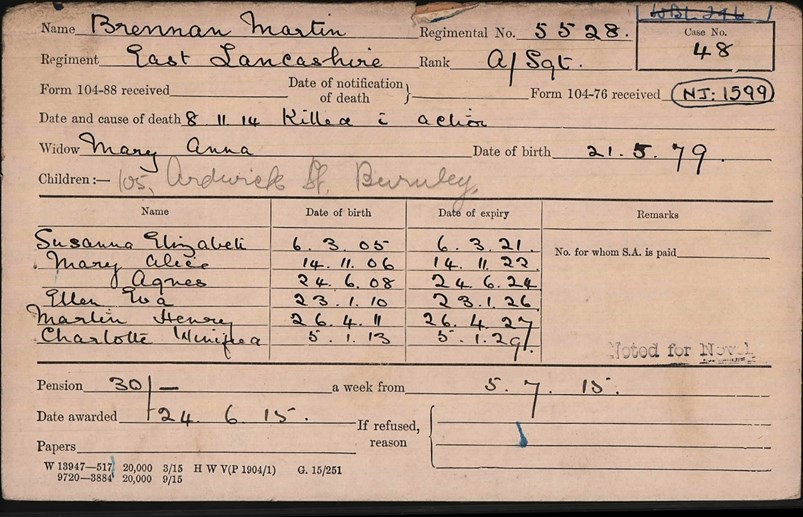 WB1. 246
Name Brennan Martin Regimental No. 5528. Case No. 48
Regiment East Lancashire Rank A/Sgt.
Form 104-88 received Date of notification of death } Form 104-76 received NJ: 1599
Date and cause of death 8 11 14 Killed i action
Widow Mary Anna Date of birth 21. 5. 79.
Children:— 105, Ardwick St. Burnley.
Name Date of birth Date of expiry Remarks
Susanna Elizabeth 6. 3. 05 6. 3. 21. No. for whom S.A. is paid
Mary Alice 14. 11. 06 14. 11. 22.
Agnes 24. 6. 08 24. 6. 24
Ellen Eva 23. 1. 10 23. 1. 26
Martin Henry 26. 4. 11 26. 4. 27
Charlotte Winifred 5. 1. 13 5. 1. 29
Noted for
Pension 30/— a week from 5. 7. 15.
Date awarded 24. 6. 15. If refused, reason {
Papers
W 13947—517 20,000 3/15 H W V(P 1904/1) G. 15/251
9720—3884 20,000 9/15